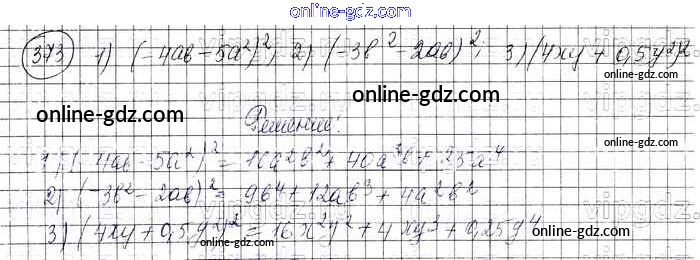 online-gdz.com
373 1) (-4ab - 5a²)²; 2) (-3b² - 2ab)²; 3) (4xy + 0,5y²)²
online-gdz.com
online-gdz.com online-gdz.com
Решение:
online-gdz.com
1) (-4ab - 5a²)² = 16a²b² + 40a³b + 25a⁴
2) (-3b² - 2ab)² = 9b⁴ + 12ab³ + 4a²b²
3) (4xy + 0,5y²)² = 16x²y² + 4xy³ + 0,25y⁴
online-gdz.com online-gdz.com